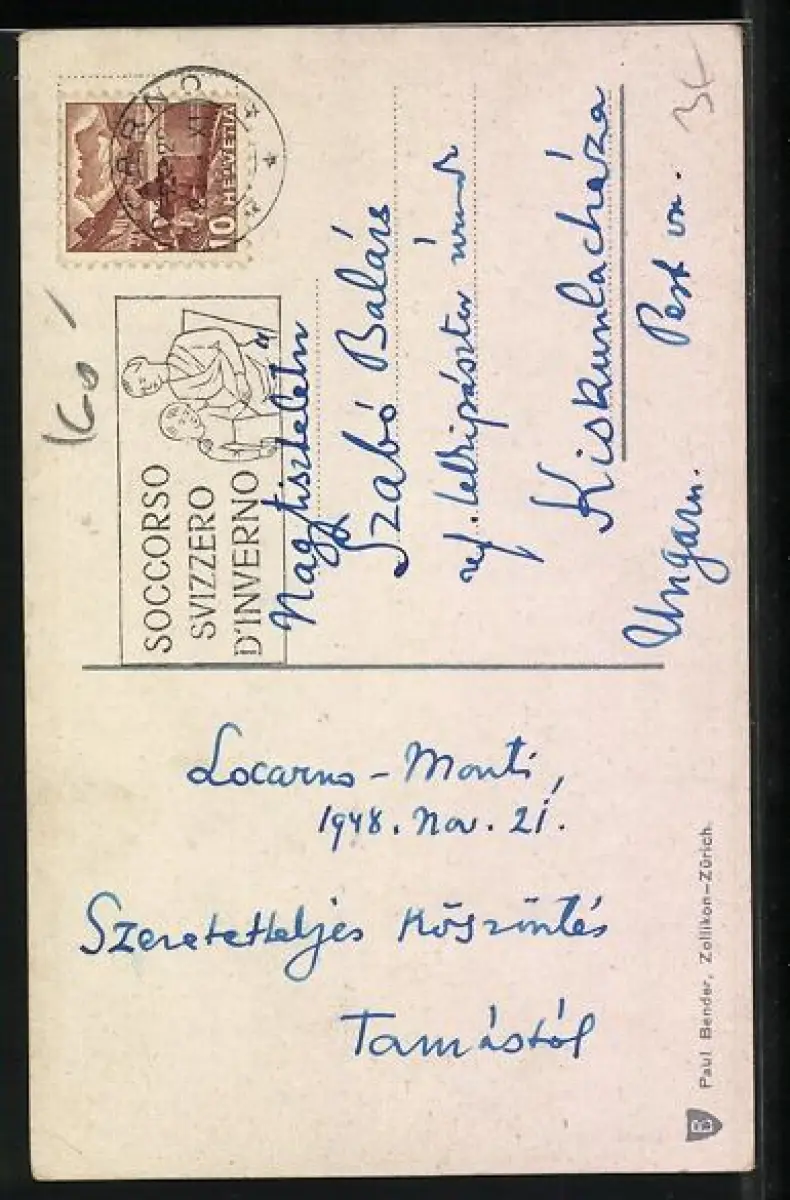 HELVETIA
10
SOCCORSO
SVIZZERO
D'INVERNO
Nagytiszteletű
Szabó Balázs
ref. lelkipásztor úrnak
Kiskunlacháza
Pest vm.
Ungarn.
Locarno-Monti,
1948. Nov. 21.
Szeretetteljes köszöntés
Tamástól
B Paul Bender, Zollikon-Zürich